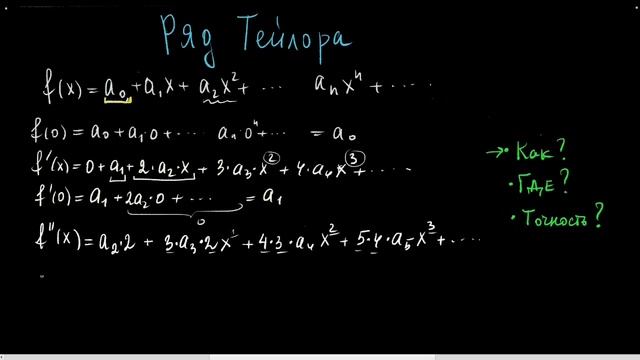 Ряд Тейлора
f(x) = a₀ + a₁x + a₂x² + ⋯ aₙxⁿ + ⋯
f(0) = a₀ + a₁·0 + ⋯ aₙ·0ⁿ + ⋯ = a₀
f'(x) = 0 + a₁ + 2·a₂·x + 3·a₃·x² + 4·a₄·x³ + ⋯
f'(0) = a₁ + 2a₂·0 + ⋯ = a₁
0
f''(x) = a₂·2 + 3·a₃·2x¹ + 4·3·a₄x² + 5·4·a₅x³ + ⋯
→ Как?
• Где?
• Точность?